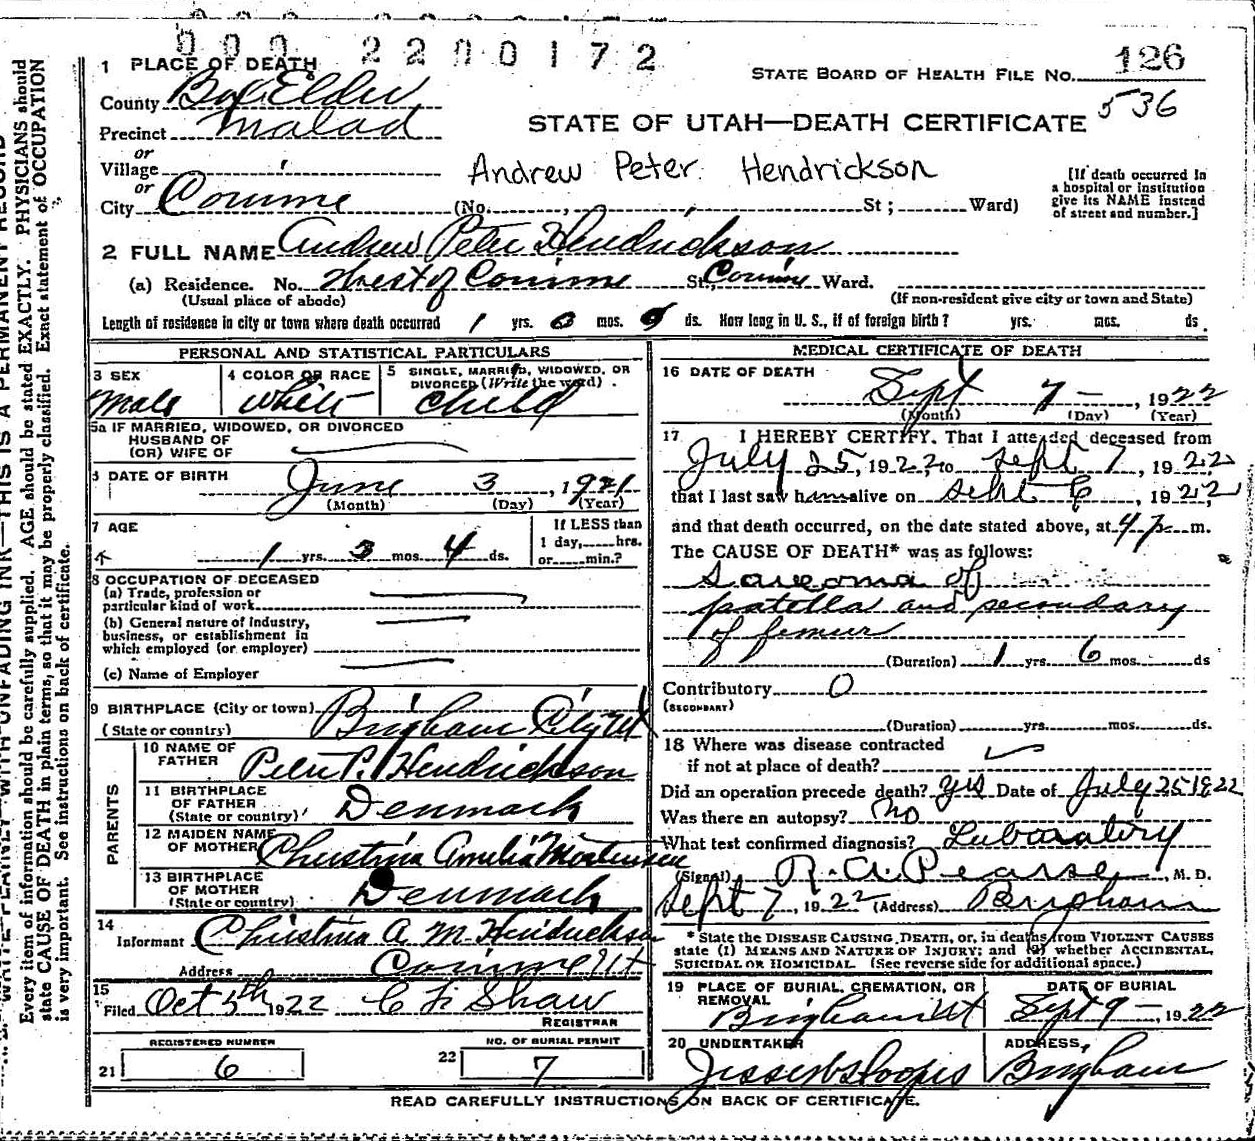 000 2200172
1 PLACE OF DEATH
STATE BOARD OF HEALTH FILE No. 126
536
County Box Elder
Precinct Malad
STATE OF UTAH—DEATH CERTIFICATE
or
Village
or
City Corinne
Andrew Peter Hendrickson
(No. St; Ward)
[If death occurred in
a hospital or institution
give its NAME instead
of street and number.]
2 FULL NAME Andrew Peter Hendrickson
(a) Residence. No. West of Corinne St, Corinne Ward.
(Usual place of abode)
(If non-resident give city or town and State)
Length of residence in city or town where death occurred 1 yrs. 0 mos. ds. How long in U. S., if of foreign birth? yrs. mos. ds.
PERSONAL AND STATISTICAL PARTICULARS
3 SEX
Male
4 COLOR OR RACE
White
5 SINGLE, MARRIED, WIDOWED, OR
DIVORCED (Write the word)
Child
5a IF MARRIED, WIDOWED, OR DIVORCED
HUSBAND OF
(OR) WIFE OF
6 DATE OF BIRTH
June 3, 1921
(Month) (Day) (Year)
7 AGE
1 yrs. 3 mos. 4 ds.
If LESS than
1 day, hrs.
or min.?
8 OCCUPATION OF DECEASED
(a) Trade, profession or
particular kind of work
(b) General nature of industry,
business, or establishment in
which employed (or employer)
(c) Name of Employer
9 BIRTHPLACE (City or town)
(State or country)
Brigham City Ut
PARENTS
10 NAME OF
FATHER
Peter P. Hendrickson
11 BIRTHPLACE
OF FATHER
(State or country)
Denmark
12 MAIDEN NAME
OF MOTHER
Christina Amelia Mortensen
13 BIRTHPLACE
OF MOTHER
(State or country)
Denmark
14
Informant Christina A. M. Hendrickson
Address Corinne Ut
15
Filed Oct 5th 1922 C F Shaw
REGISTRAR
REGISTERED NUMBER
21 6
NO. OF BURIAL PERMIT
22 7
MEDICAL CERTIFICATE OF DEATH
16 DATE OF DEATH
Sept 7 - , 1922
(Month) (Day) (Year)
17 I HEREBY CERTIFY, That I attended deceased from
July 25, 1922 to Sept 7, 1922
that I last saw him alive on Sept 6, 1922
and that death occurred, on the date stated above, at 4 p. m.
The CAUSE OF DEATH* was as follows:
Sarcoma of
patella and secondary
of femur
(Duration) 1 yrs 6 mos. ds
Contributory 0
(SECONDARY)
(Duration) yrs. mos. ds.
18 Where was disease contracted
if not at place of death?
Did an operation precede death? yes Date of July 25 1922
Was there an autopsy? No
What test confirmed diagnosis? Laboratory
(Signed) R. A. Pearse, M. D.
Sept 7, 1922 (Address) Brigham
* State the DISEASE CAUSING DEATH, or, in deaths from VIOLENT CAUSES
state (1) MEANS AND NATURE OF INJURY; and (2) whether ACCIDENTAL,
SUICIDAL OR HOMICIDAL. (See reverse side for additional space.)
19 PLACE OF BURIAL, CREMATION, OR
REMOVAL
Brigham Ut
DATE OF BURIAL
Sept 9 -, 1922
20 UNDERTAKER
ADDRESS,
Brigham
READ CAREFULLY INSTRUCTIONS ON BACK OF CERTIFICATE.
WRITE PLAINLY WITH UNFADING INK—THIS IS A PERMANENT RECORD
Every item of information should be carefully supplied. AGE should be stated EXACTLY. PHYSICIANS should
state CAUSE OF DEATH in plain terms, so that it may be properly classified. Exact statement of OCCUPATION
is very important. See instructions on back of certificate.